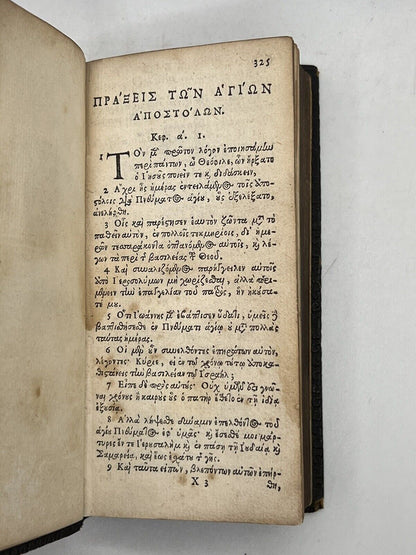 325
ΠΡΆΞΕΙΣ ΤΩ͂Ν ἉΓΊΩΝ
ἈΠΟΣΤΌΛΩΝ.
Κεφ. ά. 1.
1 ΤΟν μὲν πρῶτον λόγον ἐποιησάμην
περὶ πάντων, ὦ Θεόφιλε, ὧν ἤρξατο
ὁ Ἰησοῦς ποιεῖν τε κ̀ διδάσκειν,
2 Ἄχρι ἧς ἡμέρας ἐντειλάμενος τοῖς ἀπο-
στόλοις διὰ Πνεύματος ἁγίου, οὓς ἐξελέξατο,
ἀνελήφθη.
3 Οἷς καὶ παρέστησεν ἑαυτὸν ζῶντα μετὰ τὸ
παθεῖν αὐτὸν, ἐν πολλοῖς τεκμηρίοις, δι' ἡμε-
ρῶν τεσσαράκοντα ὀπτανόμενος αὐτοῖς, κ̀ λέ-
γων τὰ περὶ τῆς βασιλείας τοῦ Θεοῦ.
4 Καὶ συναλιζόμενος παρήγγειλεν αὐτοῖς
ἀπὸ Ἱεροσολύμων μὴ χωρίζεσθαι, ἀλλὰ περι-
μένειν τὴν ἐπαγγελίαν τοῦ πατρὸς, ἣν ἠκούσατέ
μου.
5 Ὅτι Ἰωάννης μὲν ἐβάπτισεν ὕδατι, ὑμεῖς δὲ
βαπτισθήσεσθε ἐν Πνεύματι ἁγίῳ οὐ μετὰ πολλὰς
ταύτας ἡμέρας.
6 Οἱ μὲν οὖν συνελθόντες ἐπηρώτων αὐτὸν,
λέγοντες· Κύριε, εἰ ἐν τῷ χρόνῳ τούτῳ ἀποκα-
θιστάνεις τὴν βασιλείαν τῷ Ἰσραήλ;
7 Εἶπε δὲ πρὸς αὐτούς· Οὐχ ὑμῶν ἐστι γνῶ-
ναι χρόνους ἢ καιροὺς οὓς ὁ πατὴρ ἔθετο ἐν τῇ ἰδίᾳ
ἐξουσίᾳ.
8 Ἀλλὰ λήψεσθε δύναμιν ἐπελθόντος τοῦ
ἁγίου Πνεύματος ἐφ' ὑμᾶς· κ̀ ἔσεσθέ μοι μάρ-
τυρες ἔν τε Ἱερουσαλὴμ κ̀ ἐν πάσῃ τῇ Ἰουδαίᾳ κ̀
Σαμαρείᾳ, καὶ ἕως ἐσχάτου τῆς γῆς.
9 Καὶ ταῦτα εἰπὼν, βλεπόντων αὐτῶν ἐπήρ-
X 3 θη,